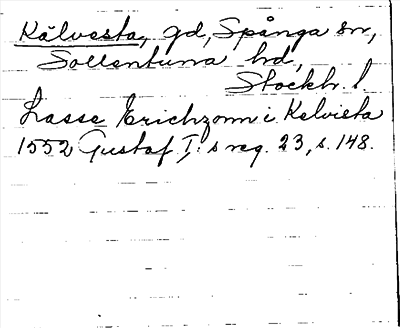 Kälvesta, gd, Spånga sn,
Sollentuna hd,
Stockh. l.
Lasse Erichzonn i Kelviesta
1552 Gustaf I:s reg. 23, s. 148.